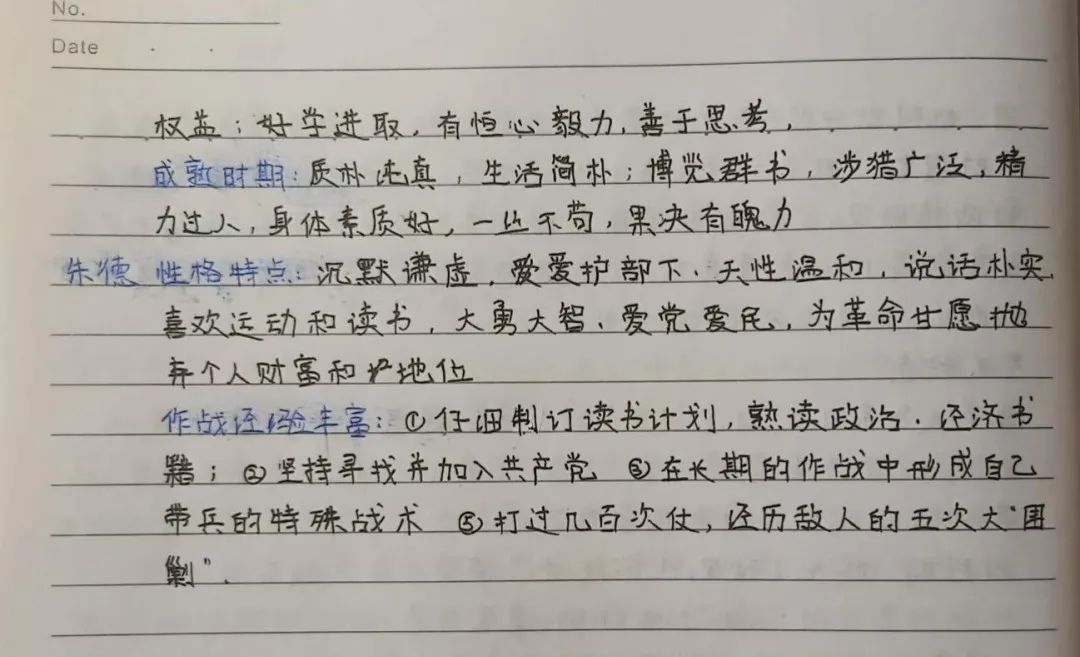 No.
Date
权益；好学进取，有恒心毅力，善于思考，
成熟时期：质朴纯真，生活简朴；博览群书，涉猎广泛，精
力过人，身体素质好，一丝不苟，果决有魄力
朱德 性格特点：沉默谦虚，爱爱护部下、天性温和，说话朴实，
喜欢运动和读书，大勇大智、爱党爱民，为革命甘愿抛
弃个人财富和地位
作战经验丰富：①仔细制订读书计划，熟读政治、经济书
籍；②坚持寻找并加入共产党 ③在长期的作战中形成自己
带兵的特殊战术 ⑤打过几百次仗，经历敌人的五次大“围
剿”.